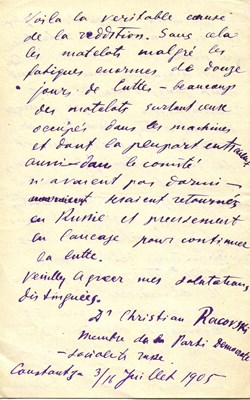 Voila la veritable cause
de la reddition. Sans cela
les matelots malgré les
fatigues enormes de douze
jours de luttes – beaucoup
des matelots surtout ceux
occupés dans les machines
et dont la plupart
aussi dans le comité
n'avaient pas dormi –
seraient retournés
en Russie et precisement
en Caucase pour continuer
la lutte.
Veuillez agreer mes salutations
distinguées.
Dr Christian Racovski
Membre de la Parti democrate
– socialiste russe
Constantza 3/16 Juillet 1905